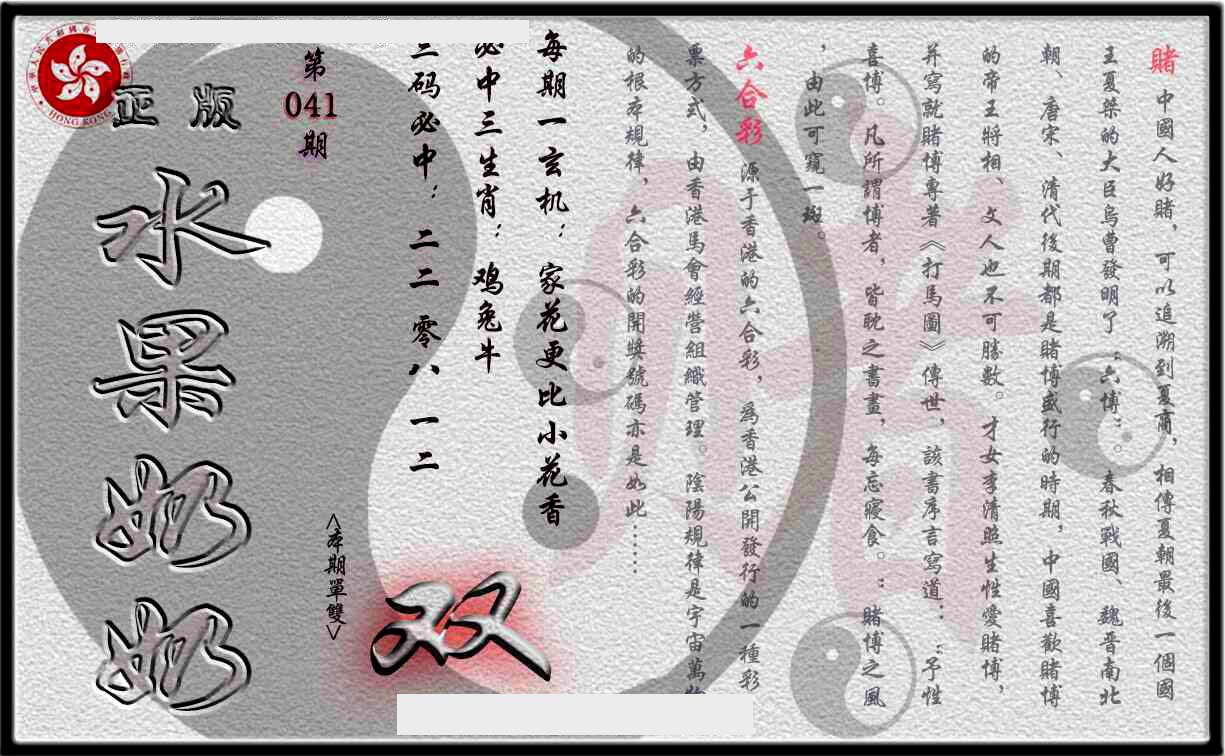 賭 中國人好賭，可以追溯到夏商，相傳夏朝最後一個國
王夏桀的大臣烏曹發明了“六博”。春秋戰國、魏晉南北
朝、唐宋、清代後期都是賭博盛行的時期，中國喜歡賭博
的帝王將相、文人也不可勝數。才女李清照生性愛賭博，
并寫就賭博專著《打馬圖》傳世，該書序言寫道：“予性
喜博。凡所謂博者，皆耽之書畫，每忘寢食。”賭博之風
，由此可窺一斑。
六合彩 源于香港的六合彩，為香港公開發行的一種彩
票方式，由香港馬會經營組織管理。陰陽規律是宇宙萬物
的根本規律，六合彩的開獎號碼亦是如此……
每期一玄机：家花更比小花香
必中三生肖：鸡兔牛
三码必中：二二 零八 一二
第
041
期
正版
水果奶奶
<本期單雙>
双
HONG KONG